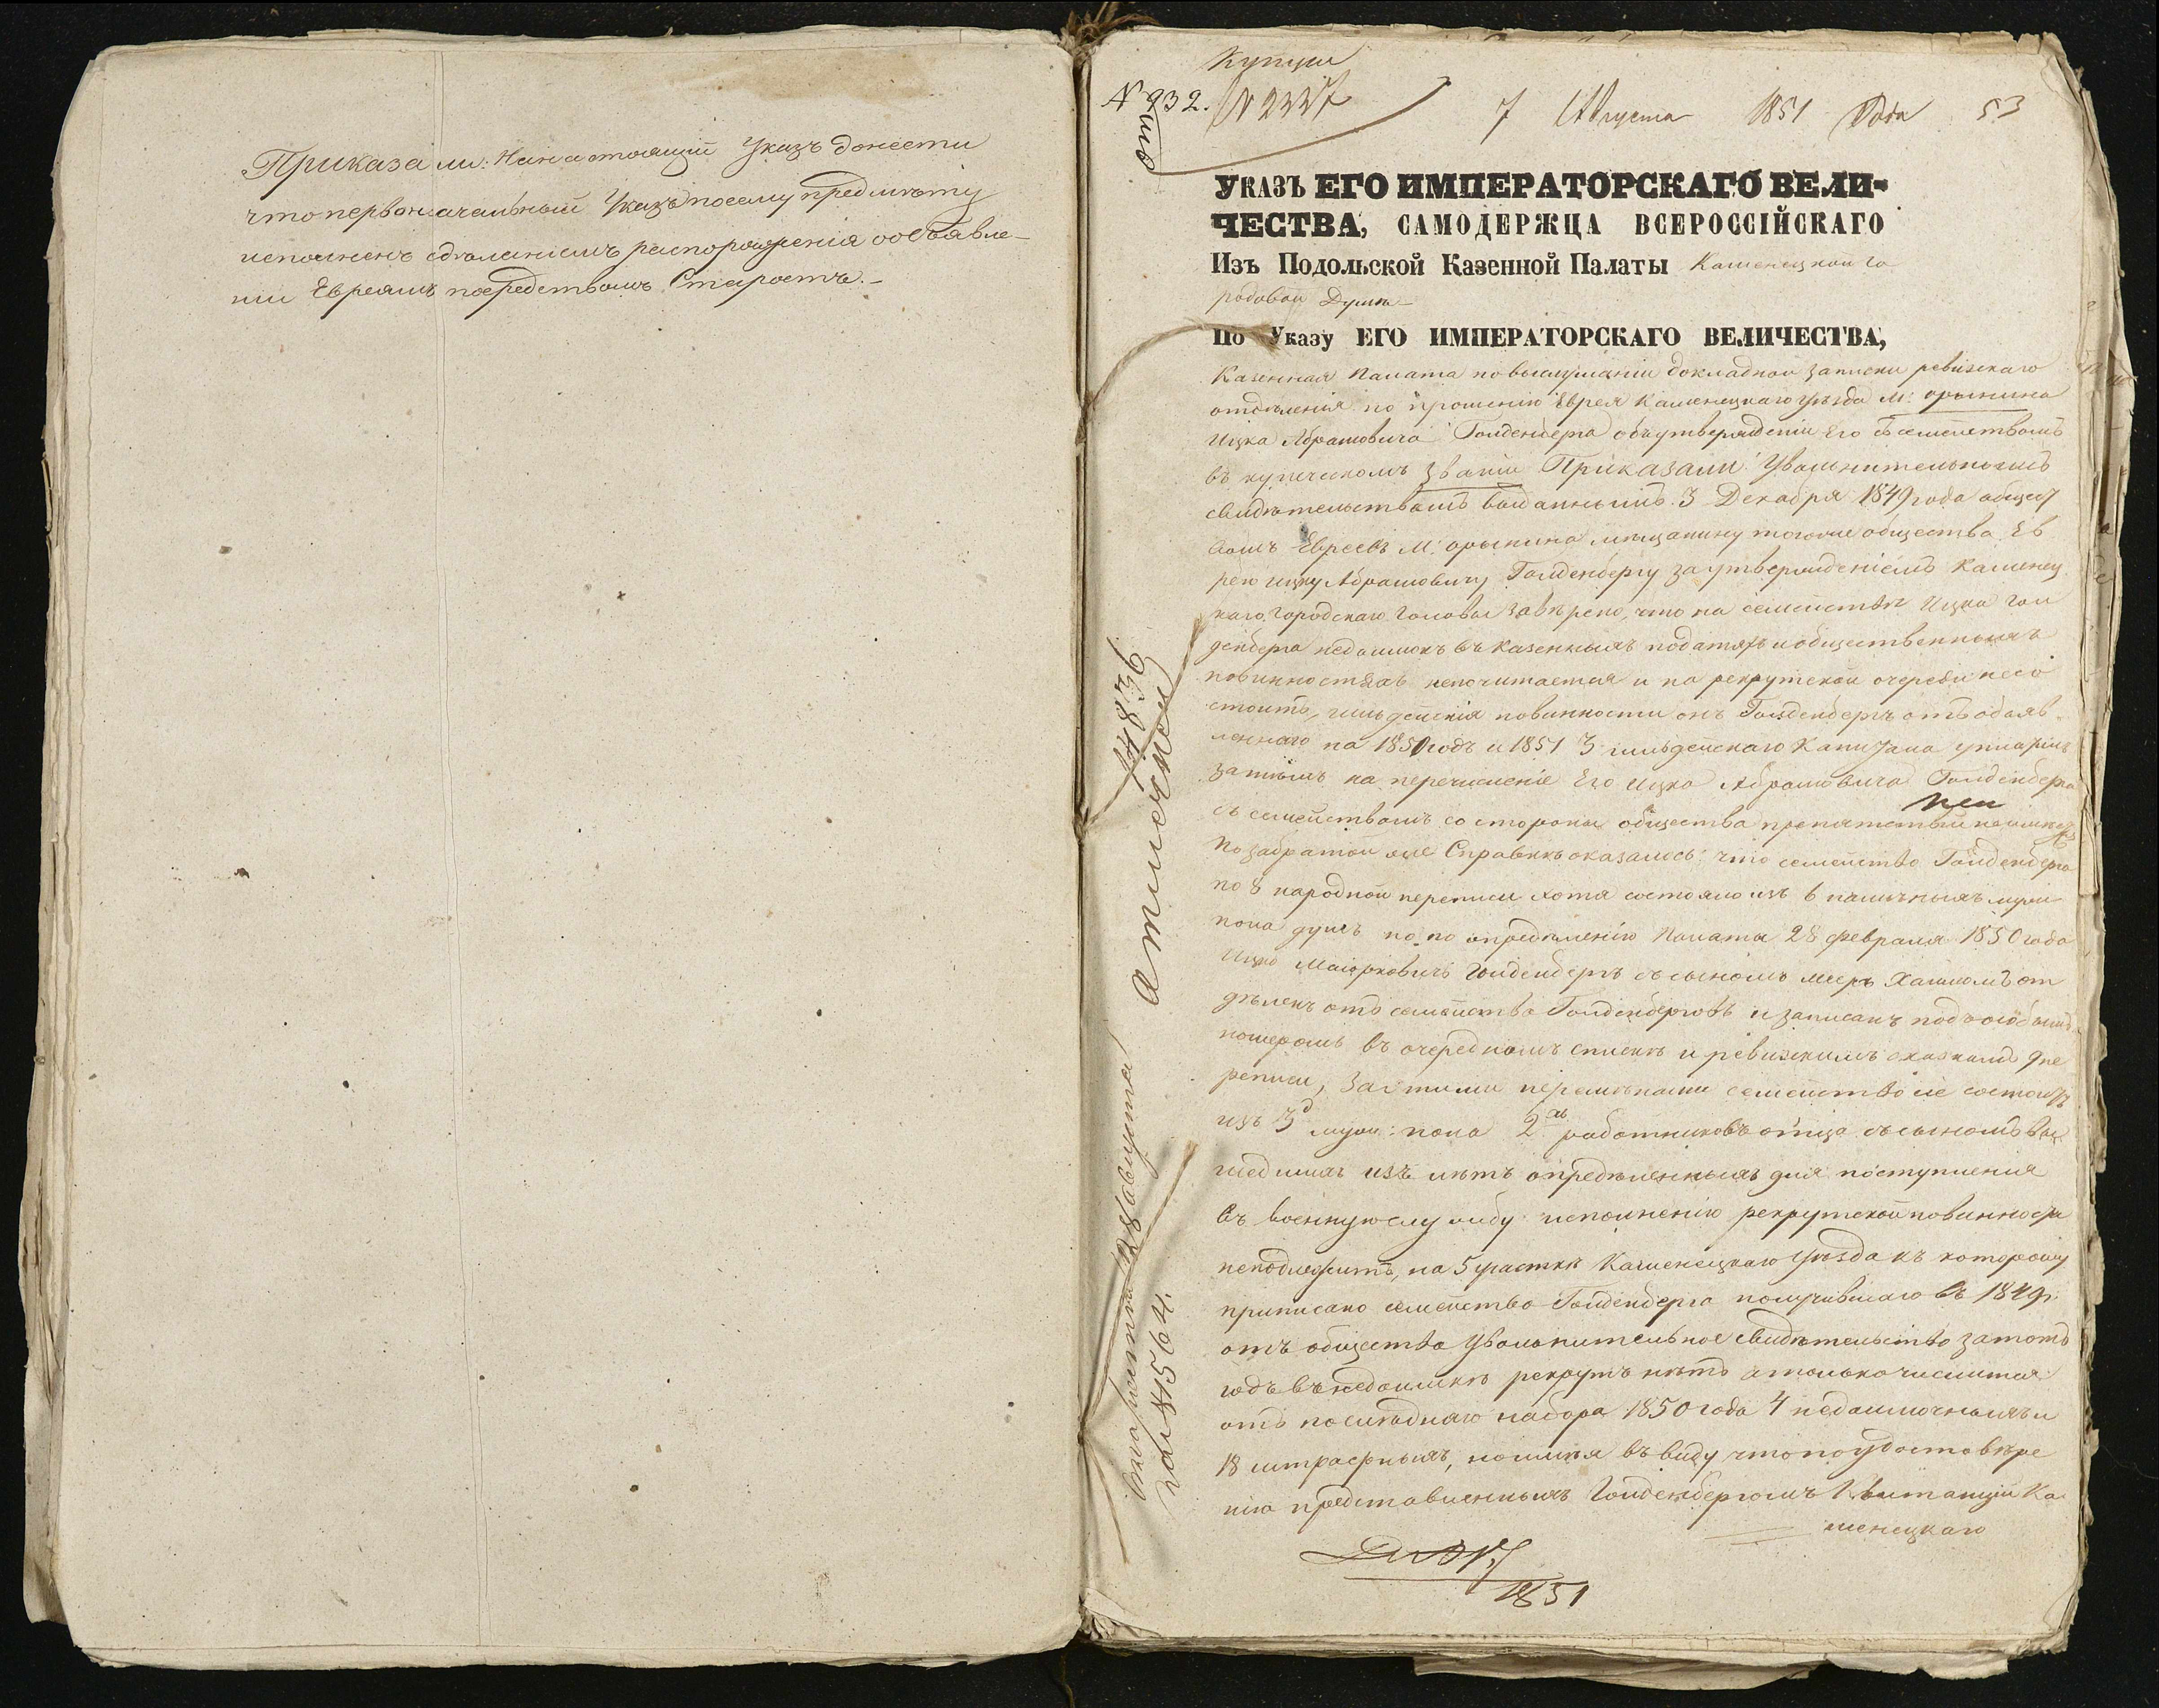 Приказали: На настоящій Указъ донести
что первоначальный Указъ по сему предмѣту
исполненъ сдѣланіемъ распоряженія объ объявле-
ніи Евреямъ посредствомъ Старостъ.-
Купцы
N 932. N 2337
7 Августа 1851 Года 53
отп
УКАЗЪ ЕГО ИМПЕРАТОРСКАГО ВЕЛИ-
ЧЕСТВА, САМОДЕРЖЦА ВСЕРОССІЙСКАГО
Изъ Подольской Казенной Палаты Каменецкой го
родовой Думѣ
По Указу ЕГО ИМПЕРАТОРСКАГО ВЕЛИЧЕСТВА,
Казенная Палата по выслушаніи докладной записки ревизскаго
отдѣленія по прошенію Еврея Каменецкаго уѣзда М: Орынина
Ицка Абрамовича Голденберга объ утвержденіи Его съ семействомъ
въ купеческомъ званіи Приказали: Увольнительнымъ
свидѣтельствомъ выданнымъ 3 Декабря 1849 года общест
вомъ Евреевъ М: Орынина мѣщанину того же общества Ев
рею Ицку Абрамовичу Голденбергу за утвержденіемъ Каменец
каго городскаго Головы завѣрено, что на семействѣ Ицка Гол
денберга недоимокъ въ казенныхъ податяхъ и общественныхъ
повинностяхъ непочитается и на рекрутской очереди несо
стоитъ, гильдейскія повинности онъ Голденбергъ отъ объяв
леннаго на 1850 годъ и 1851 3 гильдейскаго Капитала уплатилъ
затѣмъ на перечисленіе Его Ицка Абрамовича Голденберга
съ семействомъ со стороны общества препятствій неимѣетъ
По забратой же Справкѣ оказалось: что семейство Голденберга
по 8 народной переписи хотя состояло изъ 6 наличныхъ муж:
пола душъ но по опредѣленію Палаты 28 февраля 1850 года
Ицко Маіорковичъ Голденбергъ съ сыномъ Меер Хаимомъ от
дѣленъ отъ семейства Голденберговъ и записанъ подъ особымъ
номеромъ въ очередномъ спискѣ и ревизскимъ сказкамъ 9 пе
реписи, за этими перемѣнами семейство сіе состоитъ
изъ 3 муж: пола 2хъ работниковъ отца съ сыномъ вы
шедшихъ изъ лѣтъ опредѣленныхъ для поступленія
въ военную службу исполненію рекрутской повинности
неподлежитъ, на 5 участкѣ Каменецкаго уѣзда къ которому
приписано семейство Голденберга получившаго въ 1849 г.
отъ общества Увольнительное свидѣтельство за тотъ
годъ въ недоимкѣ рекрутъ нѣтъ а только числится
отъ послѣдняго набора 1850 года 4 недоимочныхъ и
18 штрафныхъ, но имѣя въ виду что по удостовѣре
нію представленныхъ Голденбергомъ Квитанцій Ка
менецкаго
1851
14836
Отмѣчено
28 августа
15564.